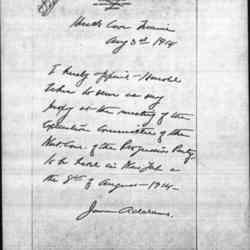 Hull's Cove Maine
Aug 3rd 1914
I hereby appoint Harold
to serve as my
proxy at the meeting of the
Executive Committee of the
Nat. Com. of the Progressive Party
to be held in New York on
the 8th of August - 1914 -
Jane Addams.